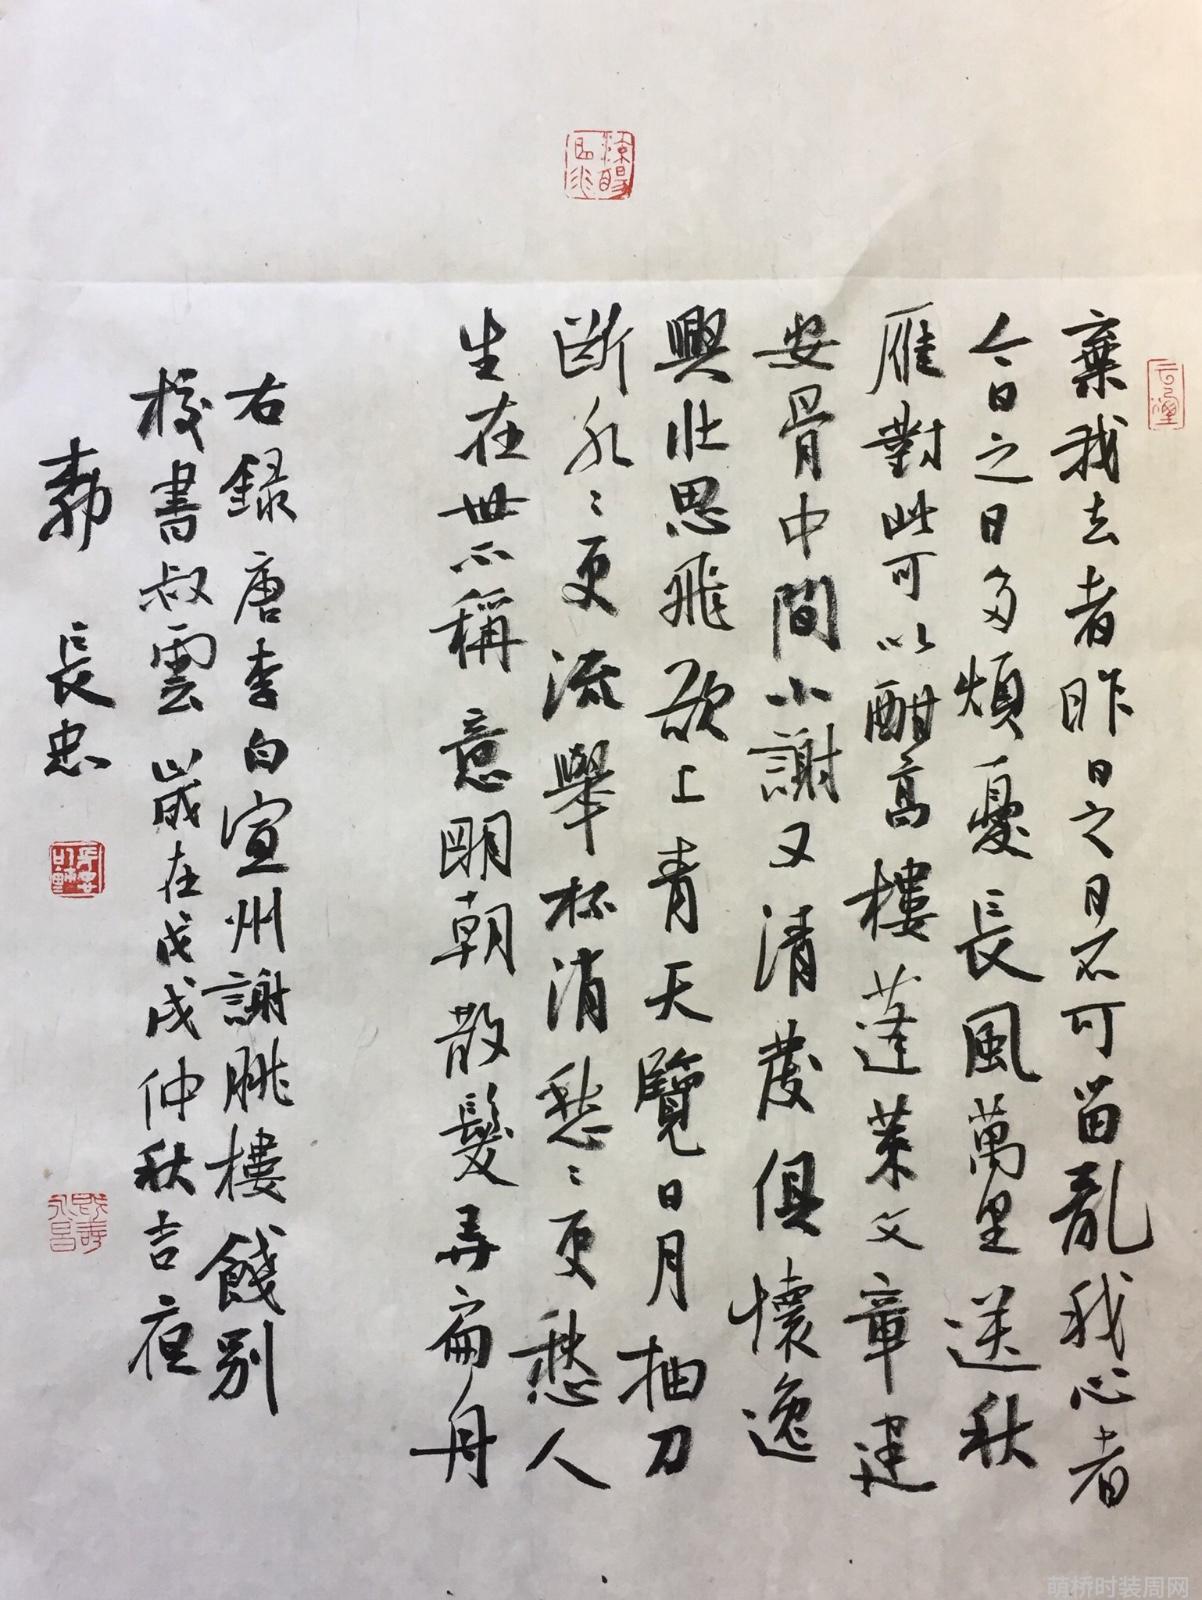 棄我去者昨日之日不可留亂我心者
今日之日多煩憂長風萬里送秋
雁對此可以酣高樓蓬萊文章建
安骨中間小謝又清發俱懷逸
興壯思飛欲上青天覽日月抽刀
斷水ミ更流舉杯消愁ミ更愁人
生在世不稱意明朝散髮弄扁舟
右錄唐李白宣州謝朓樓餞別
校書叔雲歲在戊戌仲秋吉夜
長忠
既壽永昌
萌桥时装周网